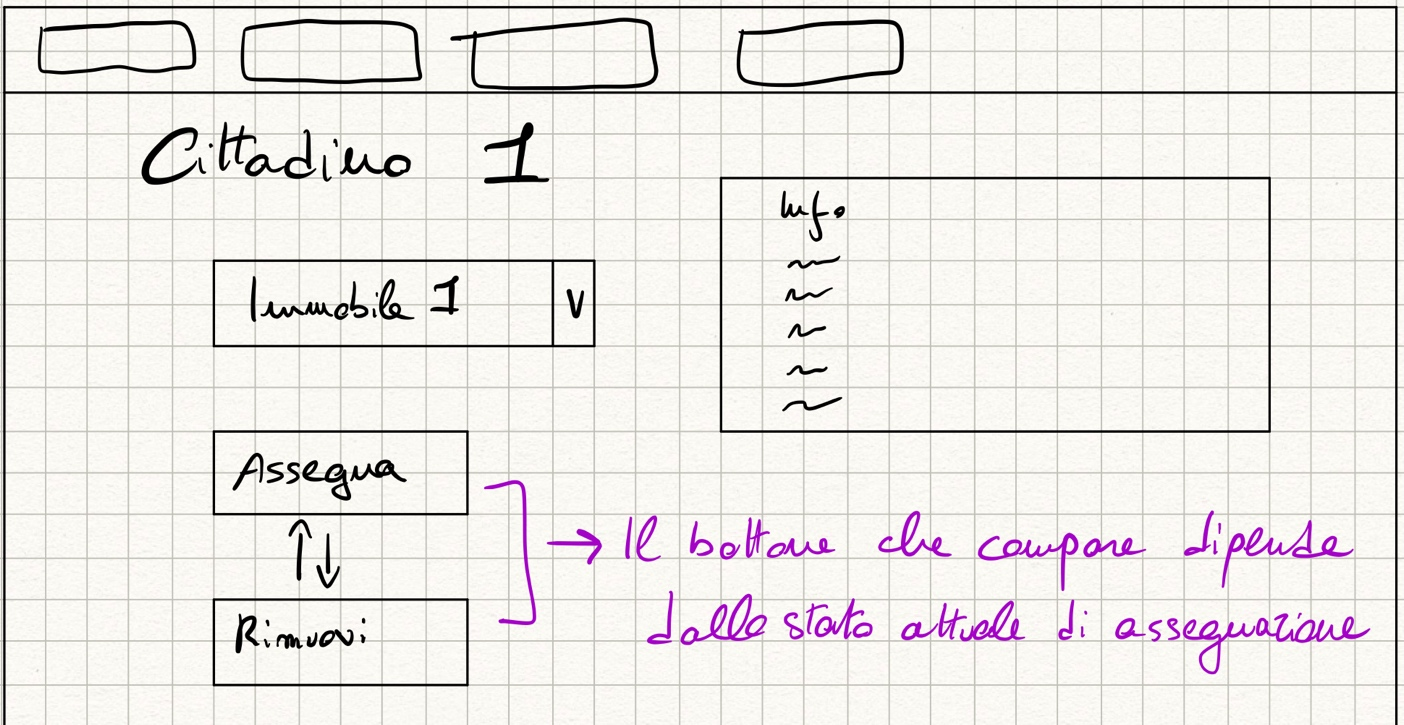 Cittadino 1
Info
Immobile 1 V
Assegna
Il bottone che compare dipende
dallo stato attuale di assegnazione
Rimuovi